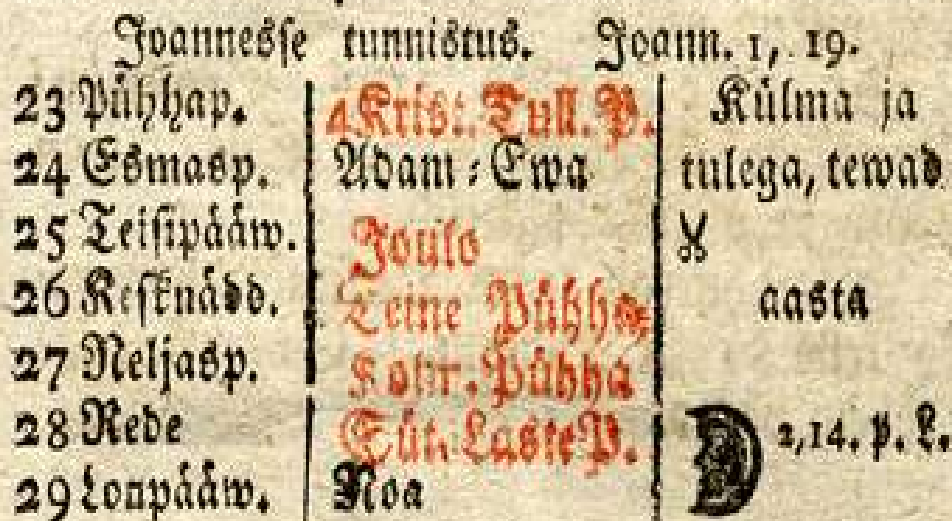 Joannesse tunnistus. Joann. 1, 19.
23 Pühhap. 4 Krist. Tull. P. Külma ja
24 Esmasp. Adam-Ewa tulega, tewad
25 Teisipääw. Joulo
26 Kesknädd. Teine Pühha aasta
27 Neljasp. Kolm. Pühha
28 Rede Süt. Laste P. 2,14. p. L.
29 Lonpääw. Noa